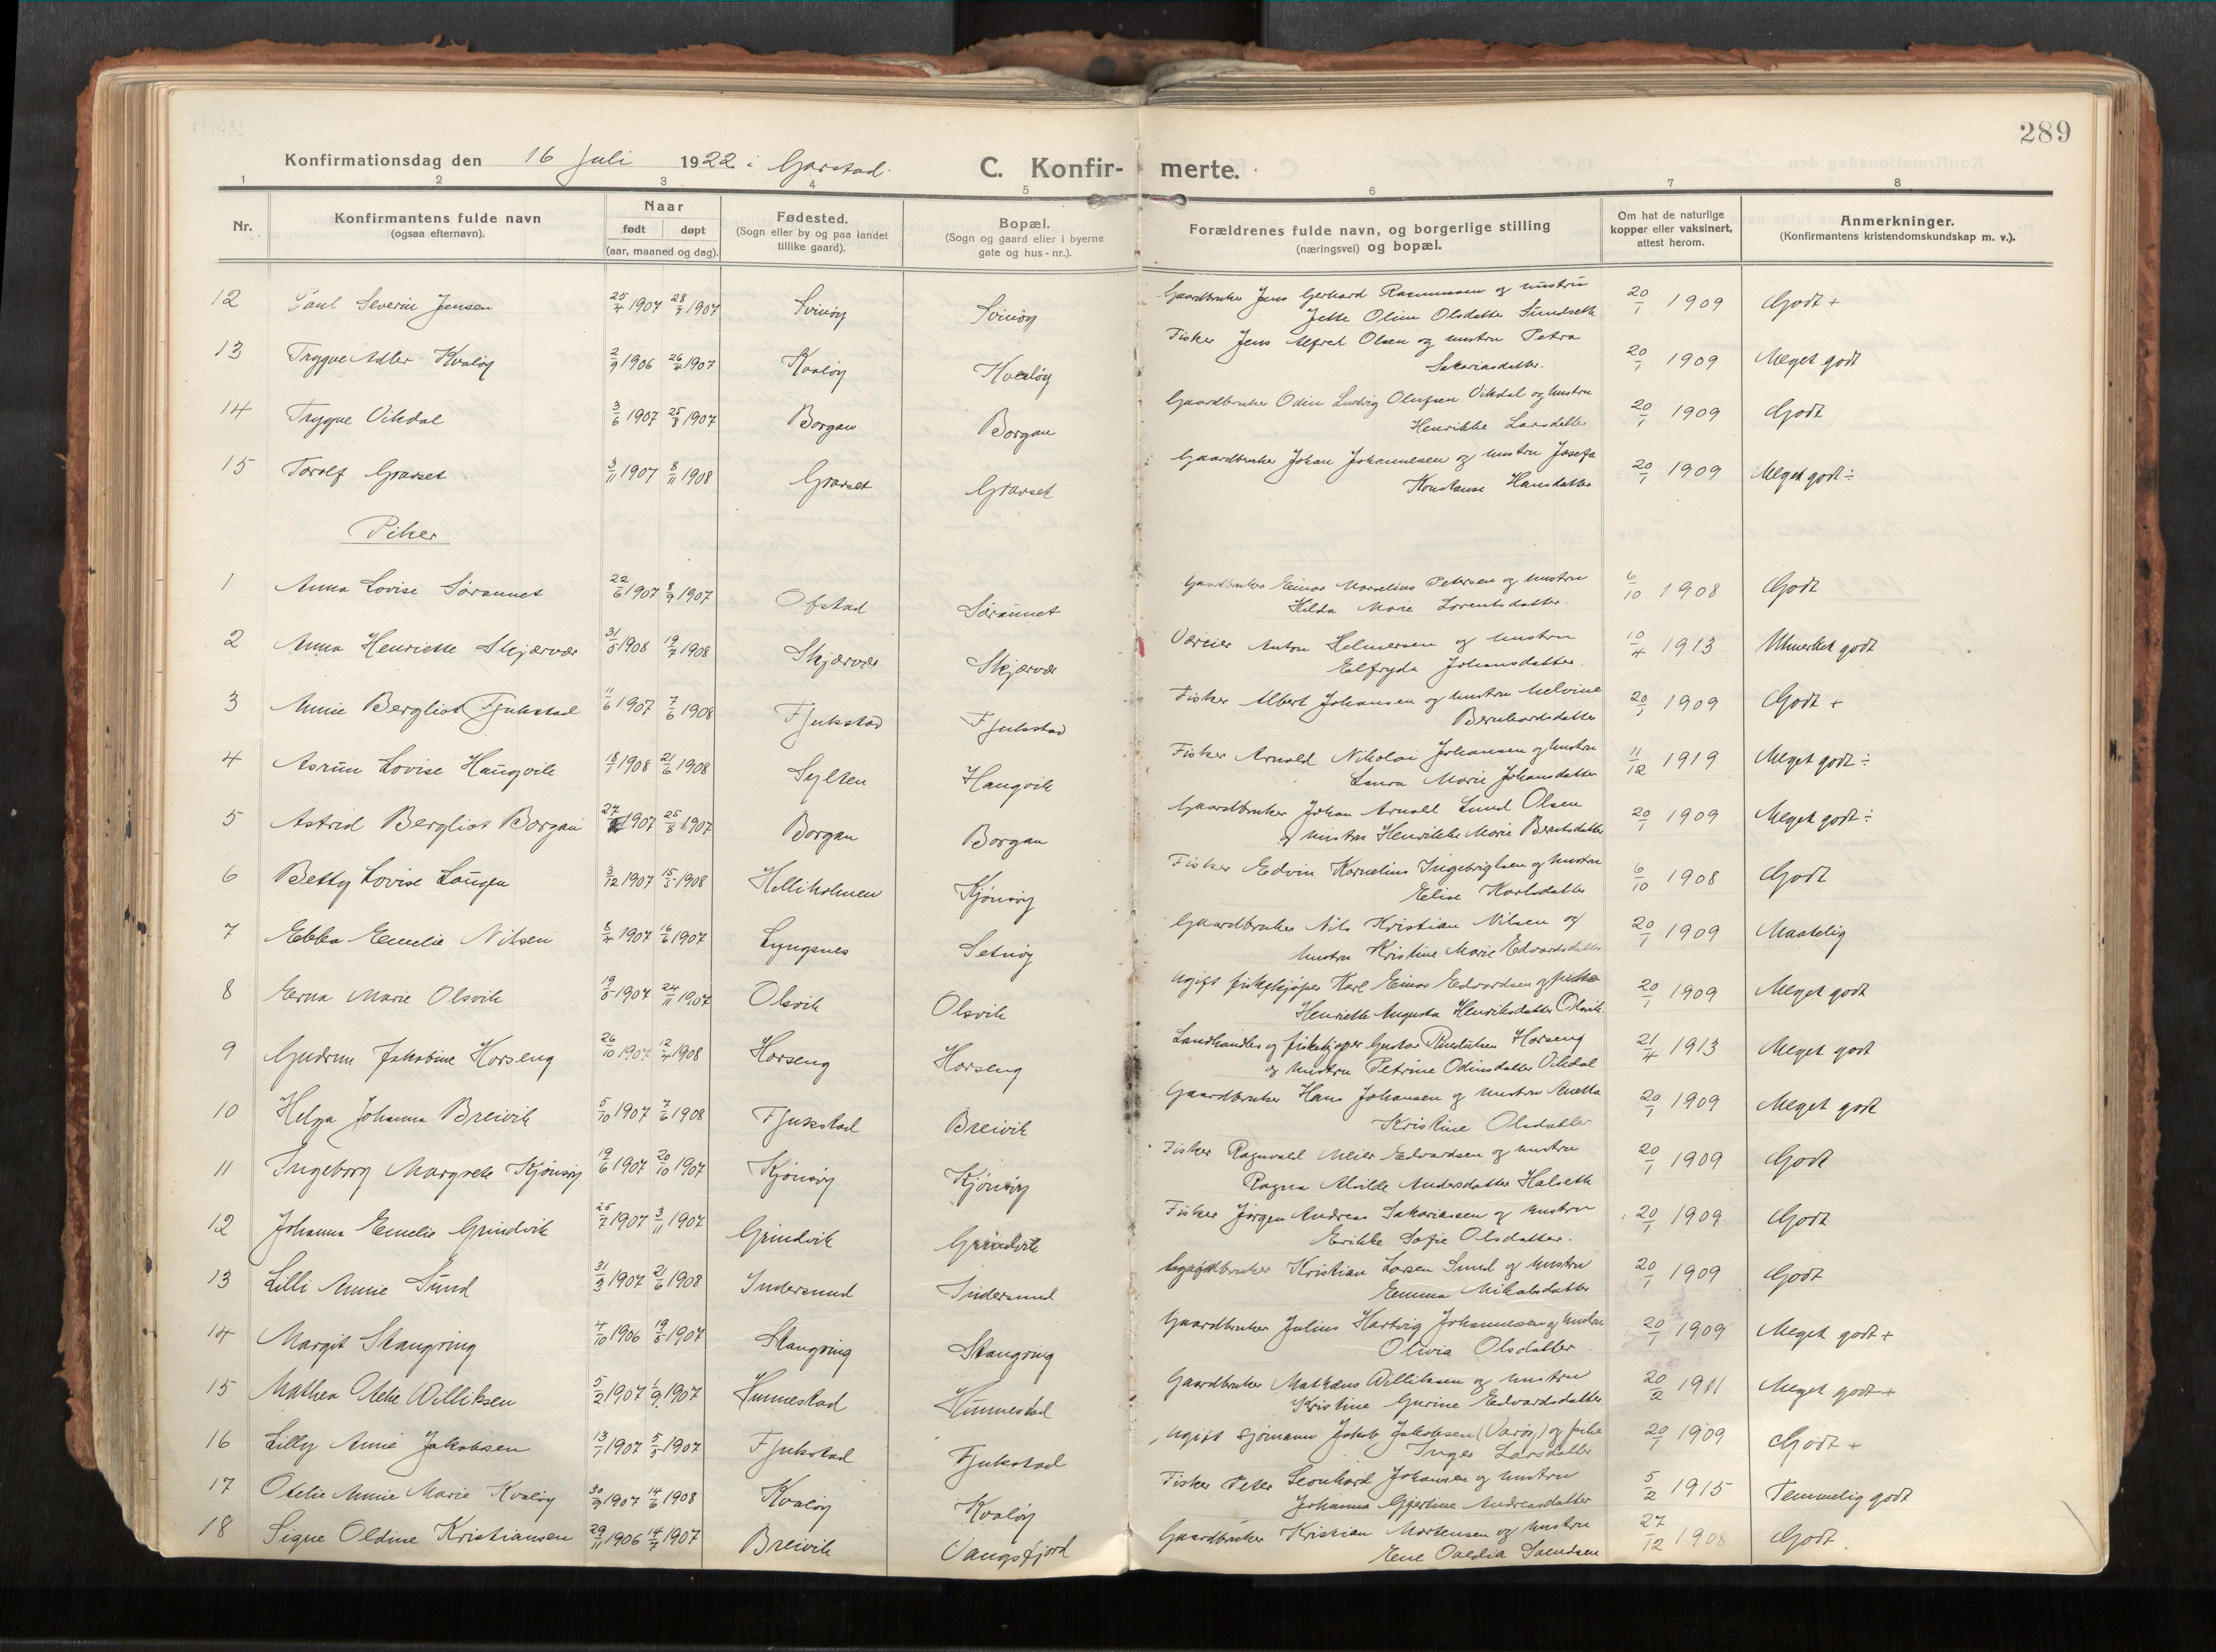 289
Konfirmationsdag den 16 Juli 1922 i Garstad.
C. Konfir- merte.
1 2 3 4 5 6 7 8
Nr.
Konfirmantens fulde navn
(ogsaa efternavn).
Naar
født døpt
(aar, maaned og dag).
Fødested.
(Sogn eller by og paa landet
tillike gaard).
Bopæl.
(Sogn og gaard eller i byerne
gate og hus-nr.).
Forældrenes fulde navn, og borgerlige stilling
(næringsvei) og bopæl.
Om hat de naturlige
kopper eller vaksinert,
attest herom.
Anmerkninger.
(Konfirmantens kristendomskundskap m. v.).
12 Paul Severin Jensen 25/4 1907 28/7 1907 Svinøy Svinøy Gaardbruker Jens Gerhard Rasmussen og hustru
Jette Oline Olsdatter Sundseth 20/1 1909 Godt +
13 Trygve Adler Kvaløy 2/9 1906 26/4 1907 Kvaløy Kvaløy Fisker Jens Alfred Olsen og hustru Petra
Sakariasdatter. 20/1 1909 Meget godt
14 Trygve Vikdal 3/6 1907 25/8 1907 Borgan Borgan Gaardbruker Odin Ludvig Olufsen Vikdal og hustru
Henrikke Larsdatter 20/1 1909 Godt
15 Torolf Gravset 3/11 1907 8/11 1908 Gravset Gravset Gaardbruker Johan Johannesen og hustru Josefa
Konstanse Hansdatter 20/1 1909 Meget godt ÷
Piker
1 Anna Lovise Sørannet 22/6 1907 8/9 1907 Ofstad Sørannet Gaardbruker Einar Marselius Petersen og hustru
Hilda Marie Lorentsdatter. 6/10 1908 Godt
2 Anna Henriette Skjærvær 31/5 1908 19/7 1908 Skjærvær Skjærvær Væreier Anton Helmersen og hustru
Elfryda Johansdatter. 10/4 1913 Utmerket godt
3 Annie Bergliot Fjukstad 11/6 1907 7/6 1908 Fjukstad Fjukstad Fisker Albert Johansen og hustru Melvine
Bernhardsdatter 20/1 1909 Godt +
4 Asrun Lovise Haugvik 18/1 1908 21/6 1908 Sylten Haugvik Fisker Arnold Nikolai Johansen og hustru
Laura Marie Johansdatter 11/12 1919 Meget godt ÷
5 Astrid Bergliot Borgan 1907 25/8 1907 Borgan Borgan Gaardbruker Johan Arnold Lund Olsen
og hustru Henrikke Marie Berntsdatter 20/1 1909 Meget godt ÷
6 Betty Lovise Laugen 3/12 1907 15/3 1908 Helliholmen Kjønsøy Fisker Edvin Kornelius Ingebrigtsen og hustru
Elise Karlsdatter 6/10 1908 Godt
7 Ebba Emelie Nilsen 8/4 1907 16/6 1907 Lyngsnes Setnøy Gaardbruker Nils Kristian Nilsen og
hustru Kristine Marie Edvardsdatter 20/1 1909 Maatelig
8 Erna Marie Olsvik 19/5 1907 24/11 1907 Olsvik Olsvik Ugift fiskekjøper Karl Einar Edvardsen og
Henriette Augusta Henriksdatter Olsvik 20/1 1909 Meget godt
9 Gudrun Jakobine Horseng 26/10 1907 12/4 1908 Horseng Horseng Landhandler og fiskekjøper Gustav Horseng
og hustru Petrine Odinsdatter Vikdal 21/4 1913 Meget godt
10 Helga Johanna Breivik 5/10 1907 7/6 1908 Fjukstad Breivik Gaardbruker Hans Johansen og hustru Anetta
Kristine Olsdatter 20/1 1909 Meget godt
11 Ingeborg Margrete Kjønsøy 19/6 1907 20/10 1907 Kjønsøy Kjønsøy Fisker Ragnvald Meier Edvardsen og hustru
Ragna Alvilde Andersdatter Halseth 20/1 1909 Godt
12 Johanna Emelie Grindvik 25/7 1907 3/11 1907 Grindvik Grindvik Fisker Jørgen Andreas Sakariassen og hustru
Erikke Sofie Olsdatter. 20/1 1909 Godt
13 Lilli Annie Sund 31/3 1907 21/6 1908 Indersund Indersund Gaardbruker Kristian Larsen Sund og hustru
Emma Mikalsdatter 20/1 1909 Godt
14 Margit Skangring 4/10 1906 19/5 1907 Skangring Skangring Gaardbruker Julius Hartvig Johannesen og hustru
Olivia Olsdatter 20/1 1909 Meget godt +
15 Mathea Otelie Williksen 5/2 1907 1/9 1907 Hunnestad Hunnestad Gaardbruker Mathæus Williksen og hustru
Kristine Gurine Edvardsdatter 20/2 1911 Meget godt +
16 Lilly Annie Jakobsen 13/1 1907 5/5 1907 Fjukstad Fjukstad Ugift Sjømann Jakob Jakobsen (Værøy) og pike
Inger Larsdatter 20/1 1909 Godt +
17 Otelie Annie Marie Kvaløy 30/9 1907 14/6 1908 Kvaløy Kvaløy Fisker Peter Leonhard Johansen og hustru
Johanna Gjertine Andreasdatter 5/2 1915 Temmelig godt
18 Signe Oldine Kristiansen 29/11 1906 14/7 1907 Breivik Vangsfjord Gaardbruker Kristian Mortensen og hustru
Ovedia Svendsen 27/12 1908 Godt.